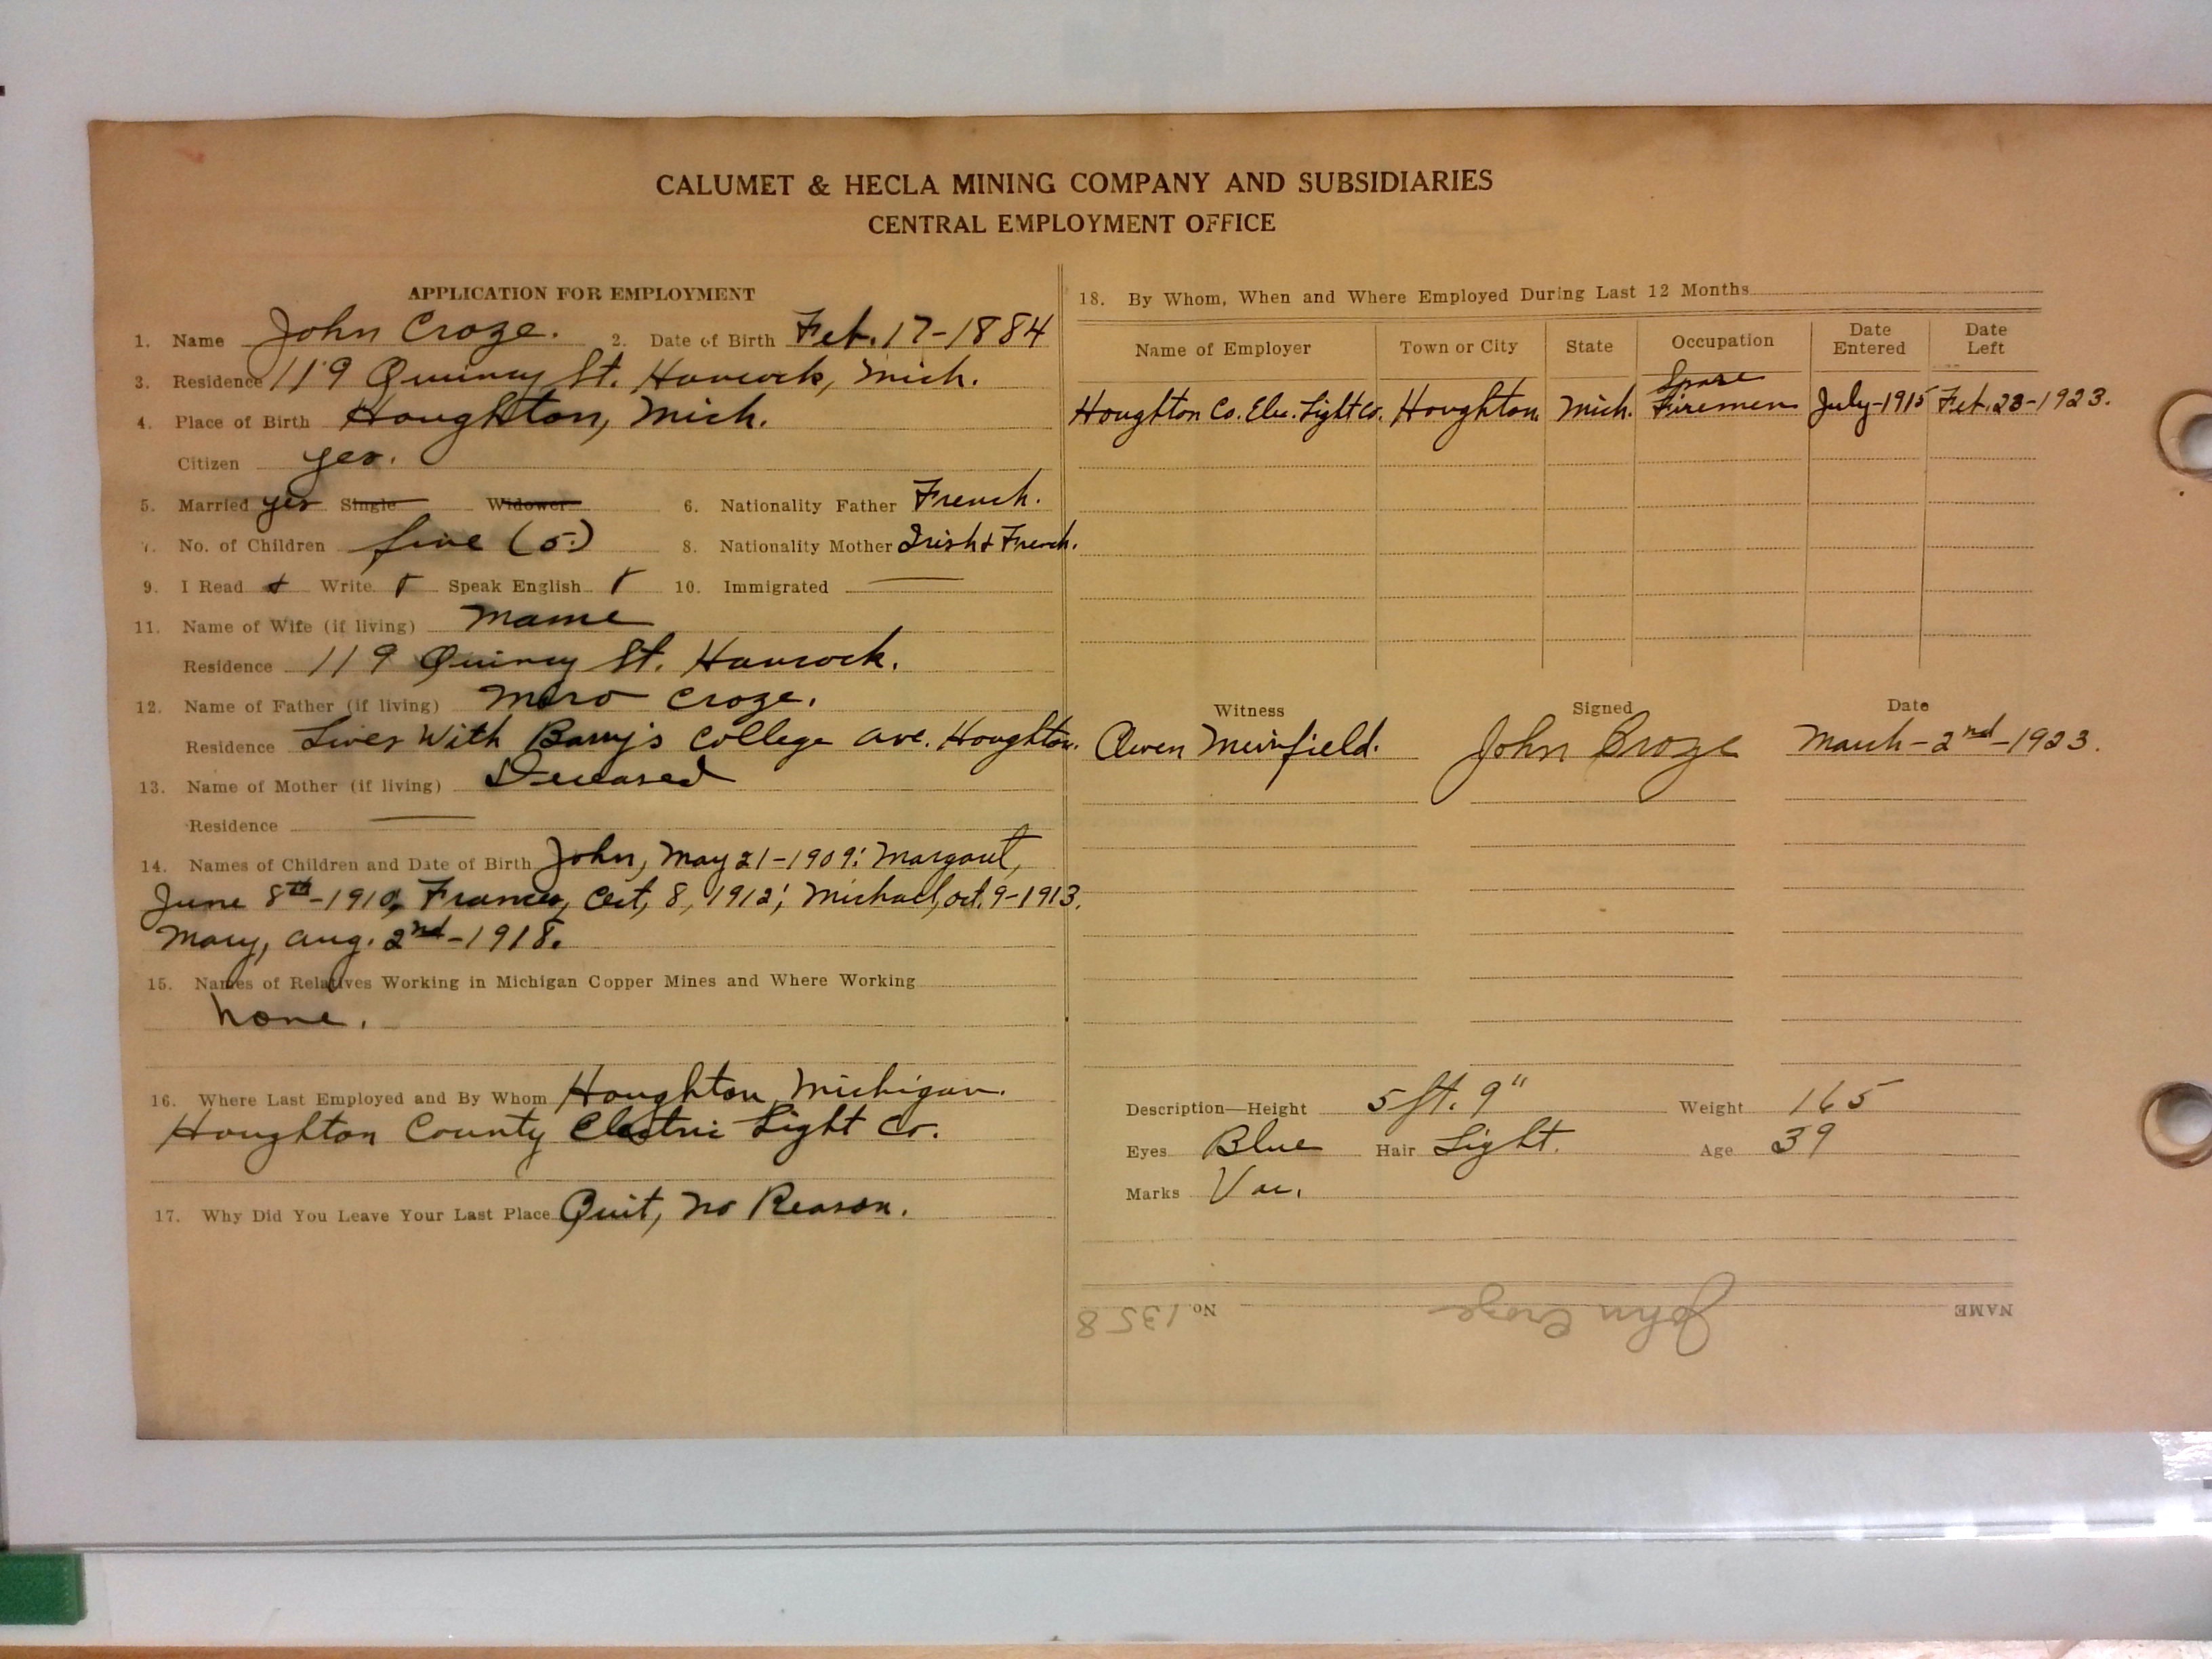 CALUMET & HECLA MINING COMPANY AND SUBSIDIARIES
CENTRAL EMPLOYMENT OFFICE
APPLICATION FOR EMPLOYMENT
1. Name John Croze. 2. Date of Birth Feb. 17-1884
3. Residence 119 Quincy St. Hancock, Mich.
4. Place of Birth Houghton, Mich.
Citizen yes.
5. Married yes Single Widower 6. Nationality Father French.
7. No. of Children five (5.) 8. Nationality Mother Irish & French.
9. I Read Write Speak English 10. Immigrated
11. Name of Wife (if living) Mame
Residence 119 Quincy St. Hancock.
12. Name of Father (if living) Croze.
Residence Lives With Barry's College ave. Houghton.
13. Name of Mother (if living) Deceased
Residence
14. Names of Children and Date of Birth John, May 21-1909: Margaret,
June 8th-1910, Frances, Oct, 8, 1912; Michael, Oct. 9-1913.
Mary, Aug. 2nd-1918.
15. Names of Relatives Working in Michigan Copper Mines and Where Working
None.
16. Where Last Employed and By Whom Houghton Michigan.
Houghton County Electric Light Co.
17. Why Did You Leave Your Last Place Quit, No Reason.
18. By Whom, When and Where Employed During Last 12 Months
Name of Employer Town or City State Occupation Date Entered Date Left
Houghton Co. Elec. Light Co. Houghton Mich. Spare Firemen July-1915 Feb. 23-1923.
Witness Signed Date
Owen John Croze March-2nd-1923.
Description—Height 5 ft. 9" Weight 165
Eyes Blue Hair Light. Age 39
Marks Vac.
NAME John Croze No. 1358